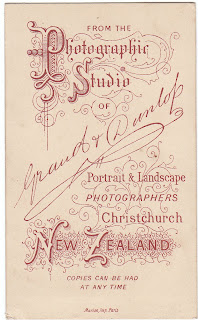 FROM THE
Photographic
Studio
OF
Grand & Dunlop
Portrait & Landscape
PHOTOGRAPHERS
Christchurch
NEW ZEALAND
COPIES CAN BE HAD
AT ANY TIME
Marion, Imp. Paris